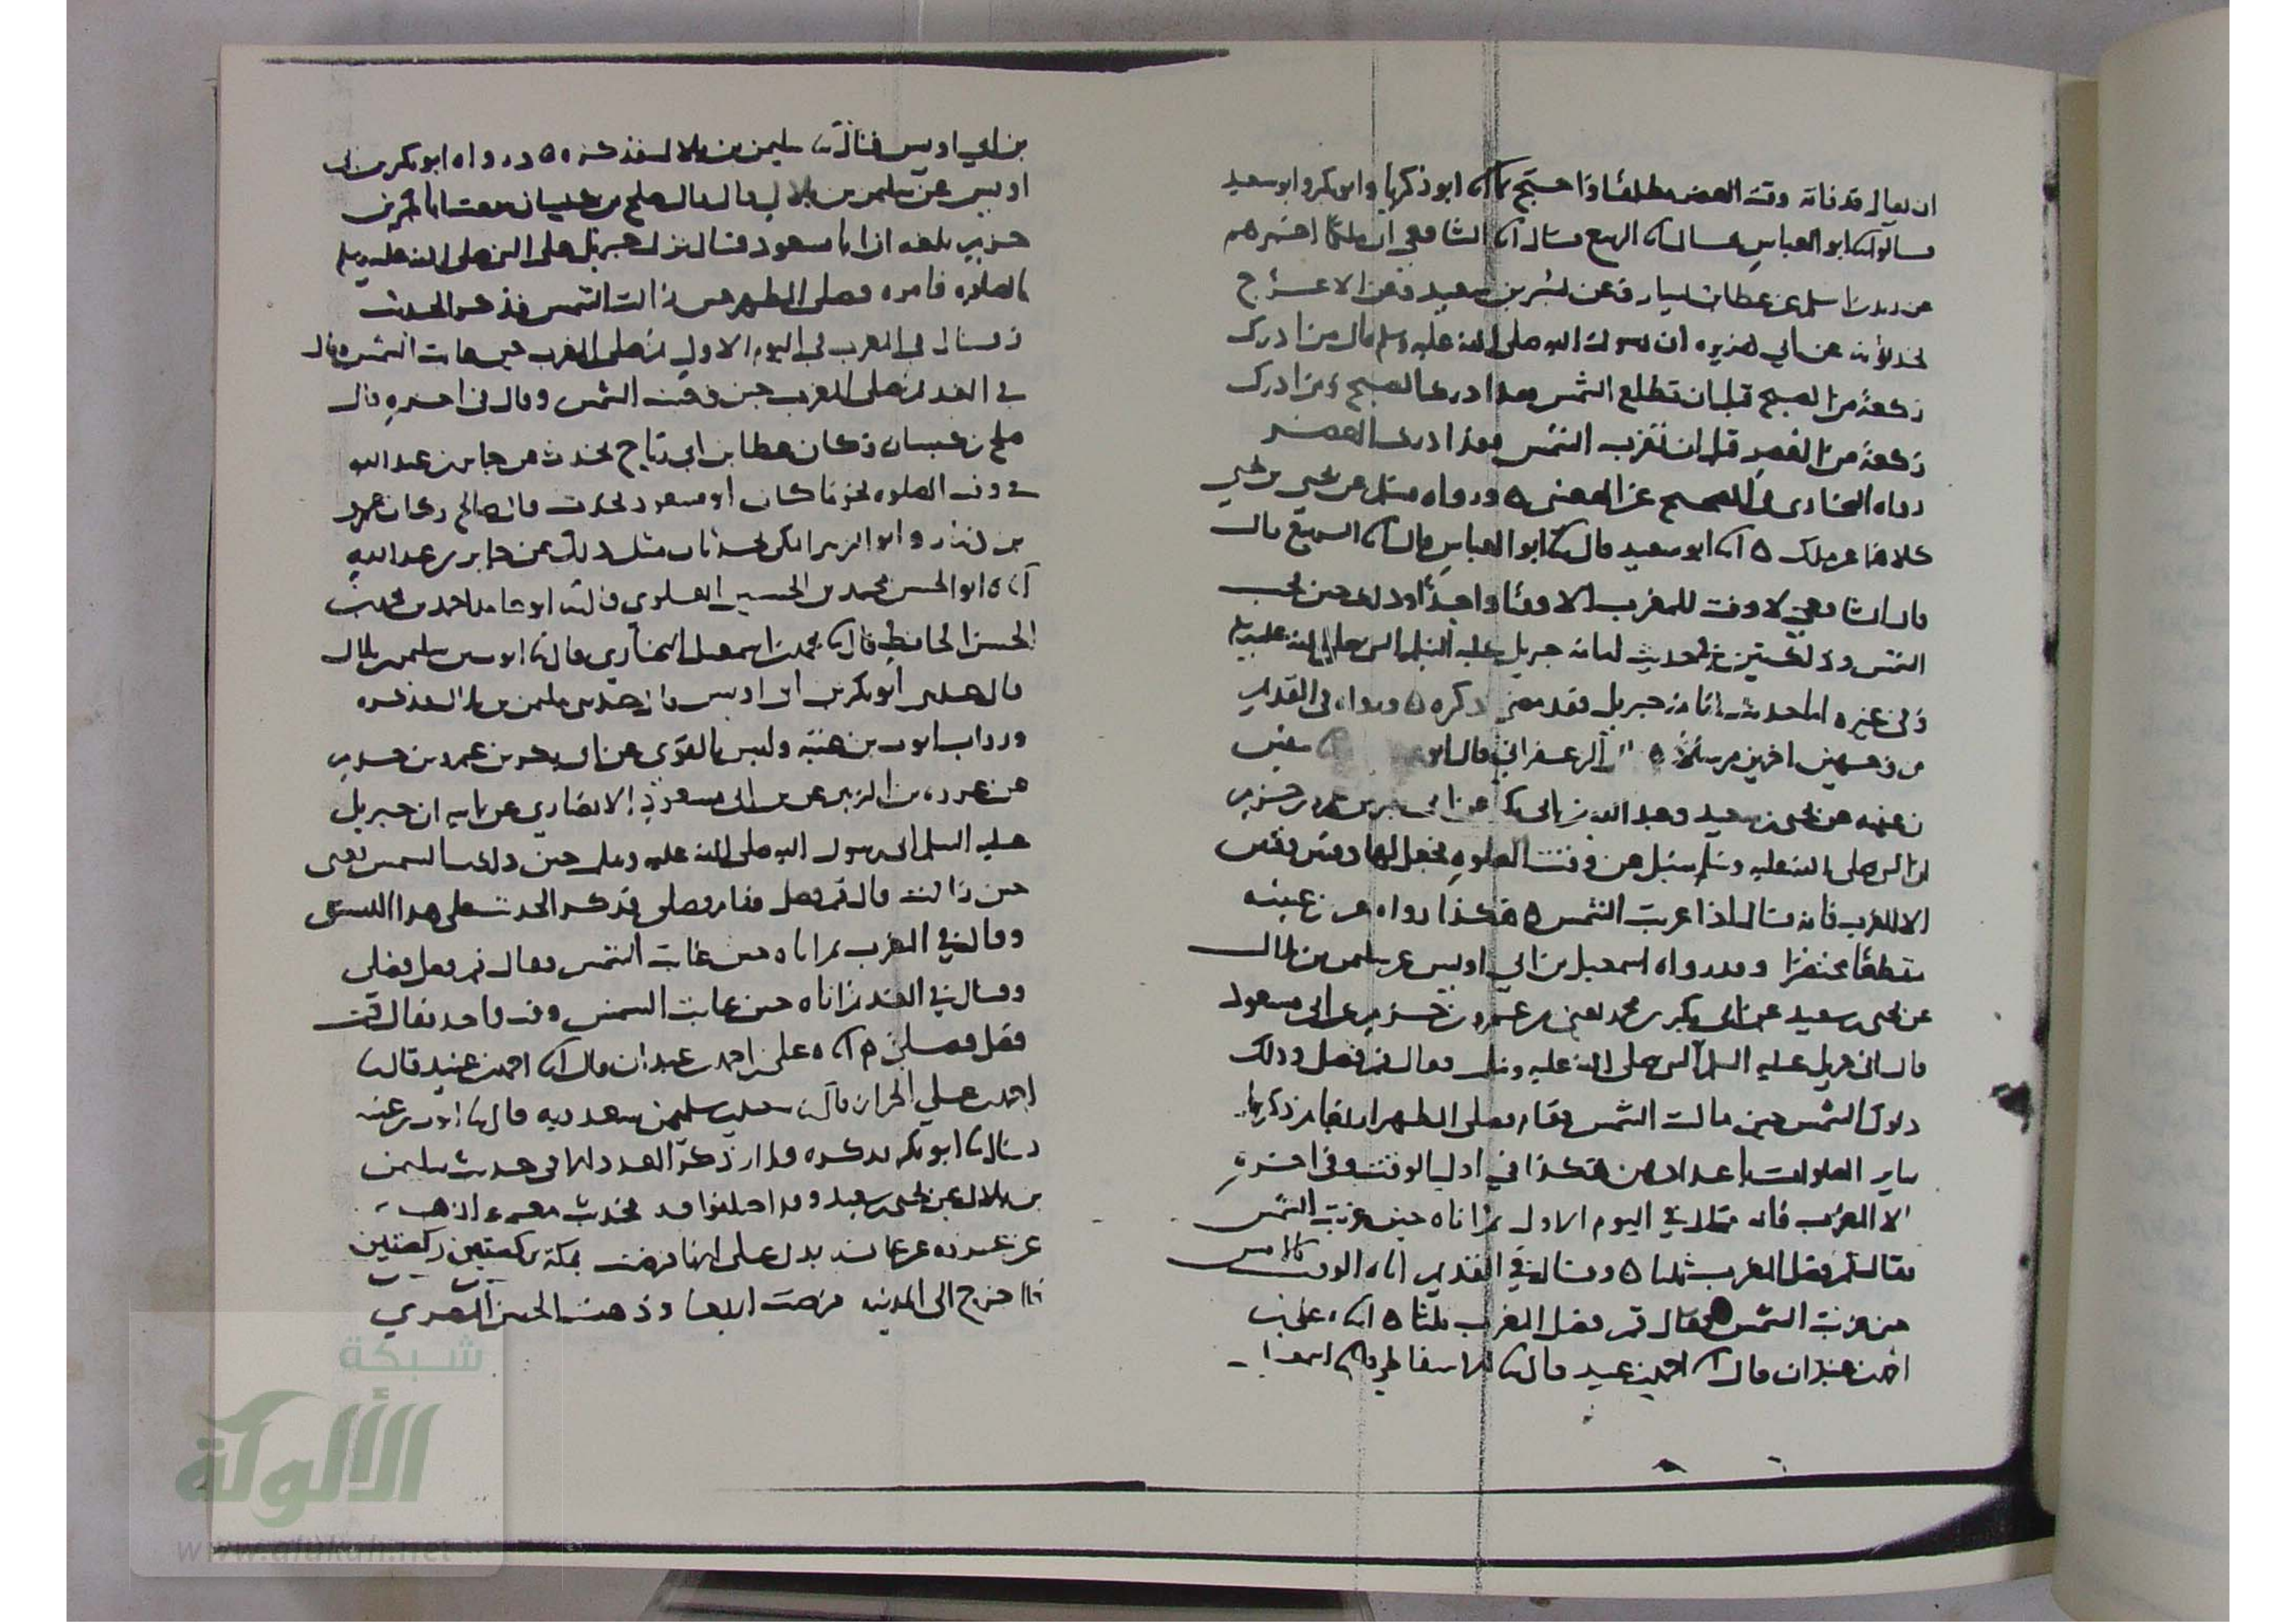 ان يقال قد فاته وقت العصر مطلقا واحتج بما انا ابو زكريا وابو بكر وابو سعيد
قالوا انا ابو العباس قال انا الربيع قال انا الشافعي ان ملكا اخبرهم
عن زيد بن اسلم عن عطا بن يسار وعن بسر بن سعيد وعن الاعرج
يحدثونه عن ابي هريره ان رسول الله صلى الله عليه وسلم قال من ادرك
ركعة من الصبح قبل ان تطلع الشمس فقد ادرك الصبح ومن ادرك
ركعة من العصر قبل ان تغرب الشمس فقد ادرك العصر
رواه البخاري في الصحيح عن القعنبي ه ورواه مسلم عن يحيى بن يحيى
كلاهما عن ملك ه انا ابو سعيد قال ثنا ابو العباس قال انا الربيع قال
قال الشافعي لا وقت للمغرب الا وقتا واحدا وذلك حين تجب
الشمس وذلك بين في حديث امامة جبريل عليه السلم النبي صلى الله عليه وسلم
وفي غيره اما حديث امامة جبريل فقد مضى ذكره ه ورواه في القديم
من وجهين اخرين مرسلا ه الزعفراني قال ابو سفين
بن عيينه عن يحيى بن سعيد وعبد الله بن ابي بكر عن ابي بكر بن عمرو بن حزم
ان النبي صلى الله عليه وسلم سئل عن وقت الصلوه فجعل لها وقتين وقتين
الا المغرب فانه قال اذا غربت الشمس ه هكذا رواه بن عيينه
منقطعا مختصرا وقد رواه اسمعيل بن ابي اويس عن سليمن بن بلال
عن يحيى بن سعيد عن ابي بكر بن محمد يعني بن عمرو بن حزم عن ابي مسعود
قال اتى جبريل عليه السلم النبي صلى الله عليه وسلم فقال قم فصل وذلك
دلوك الشمس حين مالت الشمس فقام فصلى الظهر اربعا ثم ذكر
ساير الصلوات باعدادهن هكذا في اول الوقت وفي اخره
الا المغرب فانه قال في اليوم الاول ثم اتاه حين غربت الشمس
فقال قم فصل المغرب ثلثا ه وقال في الغد ثم اتاه الوقت بالامس
حين غربت الشمس فقال قم فصل المغرب ثلثا ه انا ه علي بن
احمد بن عبدان قال انا احمد بن عبيد قال ثنا الاسفاطي قال ثنا اسمعيل
بن ابي اويس قال ثنا سليمن بن بلال فذكره ه ورواه ابو بكر بن ابي
اويس عن سليمن بن بلال قال قال صلح بن كيسان سمعت ابا بكر بن
حزم بلغه ان ابا مسعود قال نزل جبريل على النبي صلى الله عليه وسلم
بالصلوه فامره فصلى الظهر حين زالت الشمس فذكر الحديث
وقال في المغرب في اليوم الاول ثم صلى المغرب حين غابت الشمس وقال
في الغد ثم صلى المغرب حين وقعت الشمس وقال في اخره قال
صلح بن كيسان وكان عطا بن ابي رباح يحدث عن جابر بن عبد الله
في وقت الصلوه نحو ما كان ابو مسعود يحدث قال صالح وكان عمرو
بن دينار وابو الزبير المكي يحدثان مثل ذلك عن جابر بن عبد الله
انا ه ابو الحسن محمد بن الحسين العلوي قال ثنا ابو حامد احمد بن محمد بن
الحسن الحافظ قال ثنا محمد بن اسمعيل البخاري قال ثنا ايوب بن سليمن بن بلال
قال حدثني ابو بكر بن ابي اويس قال حدثني سليمن بن بلال فذكره
ورواه ايوب بن عتبه وليس بالقوي عن ابي بكر بن عمرو بن حزم
عن عروه بن الزبير عن بن ابي مسعود الانصاري عن ابيه ان جبريل
عليه السلم اتى رسول الله صلى الله عليه وسلم حين دلكت الشمس يعني
حين زالت قال قم فصل فقام فصلى فذكر الحديث على هذا النسق
وقال في المغرب ثم اتاه حين غابت الشمس فقال قم فصل فصلى
وقال في الغد ثم اتاه حين غابت الشمس وقت واحد فقال قم
فصل فصلى ه انا ه علي بن احمد بن عبدان قال انا احمد بن عبيد قال ثنا
احمد بن علي الخراز قال ثنا سعيد بن سليمن سعدويه قال ثنا ايوب بن عتبه
قال ثنا ابو بكر فذكره
بن بلال عن يحيى بن سعيد وقد
عن عروه عن عايشه يدل على انها فرضت بمكة ركعتين ركعتين
فلما خرج الى المدينه فرضت اربعا وذهب الحسن البصري
شبكة
الألوكة
www.alukah.net